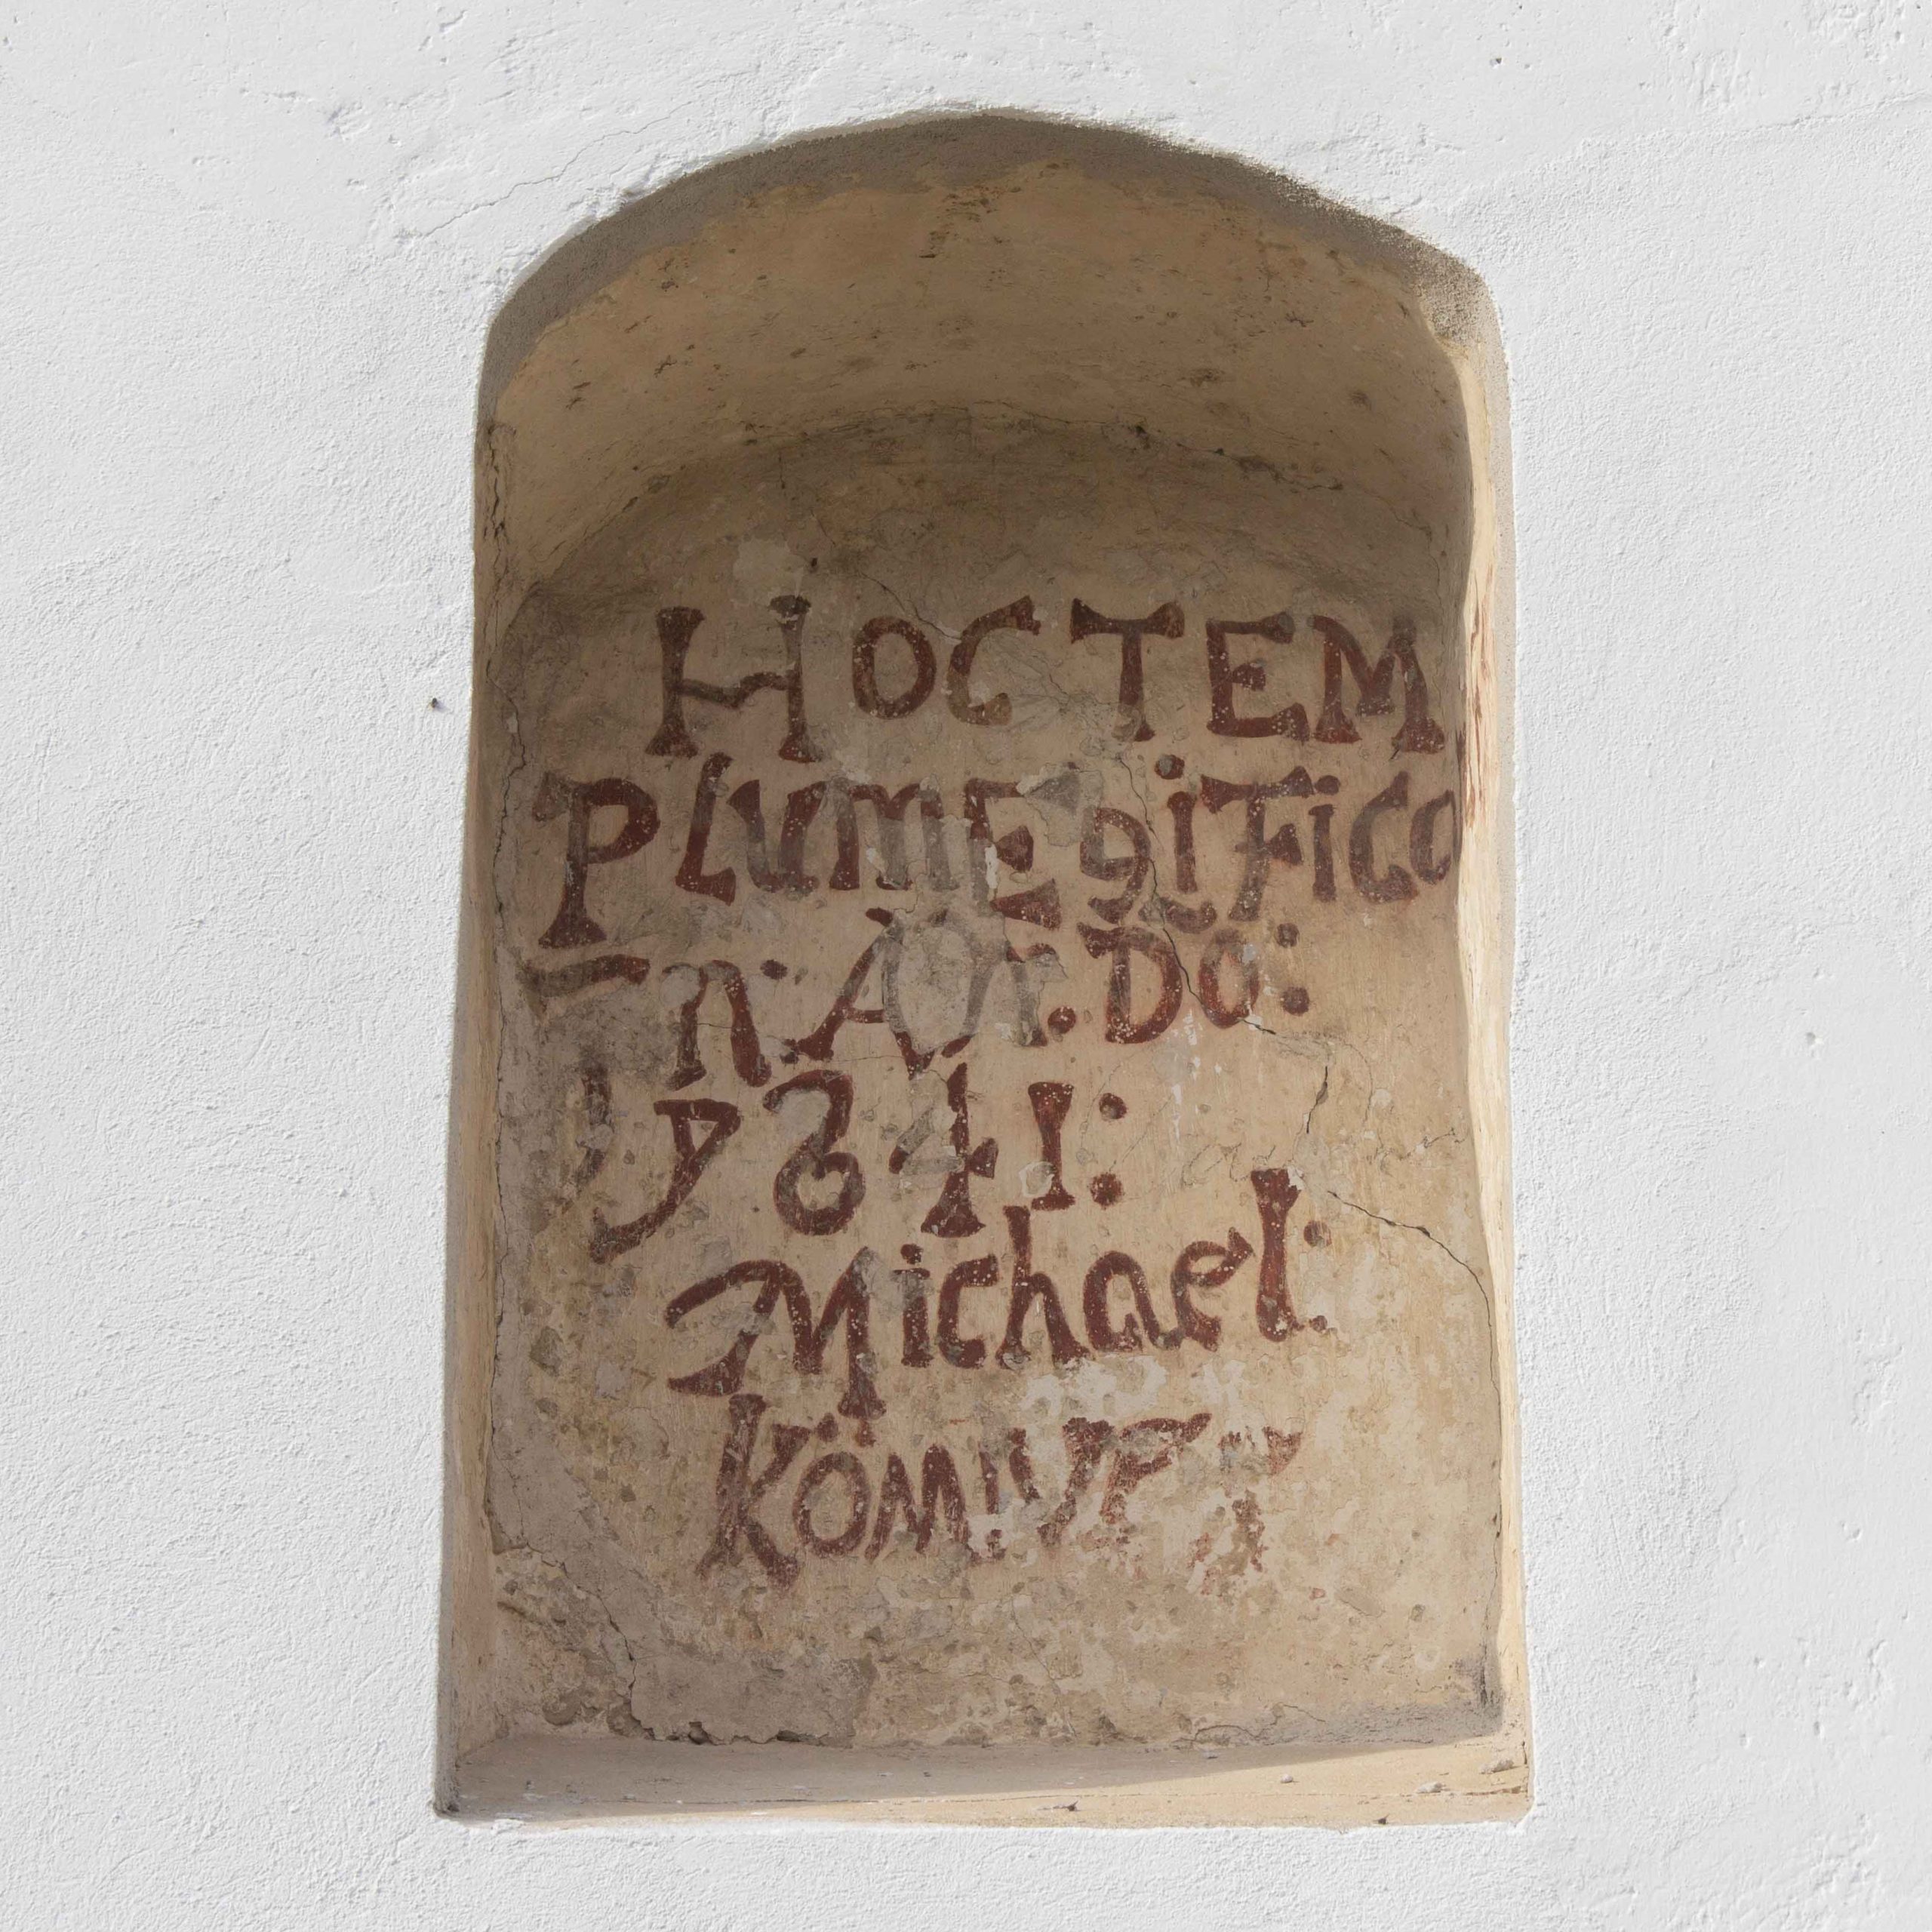 HOCTEM
PLUMEDiFiCO
n· Añ. DO:
1841:
Michael: